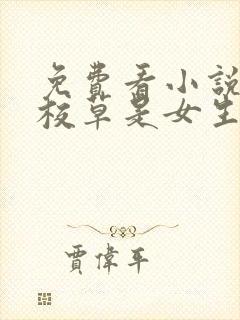 免費看小說
校草是女生
賈偉平